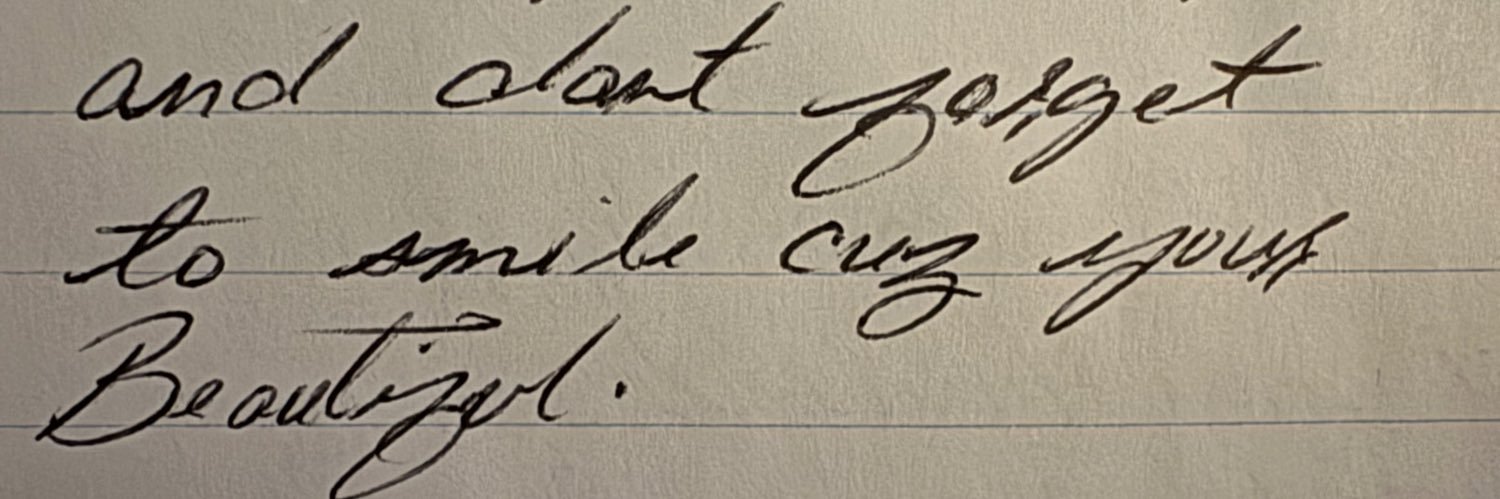 and dont forget
to smile cuz your
Beautiful.